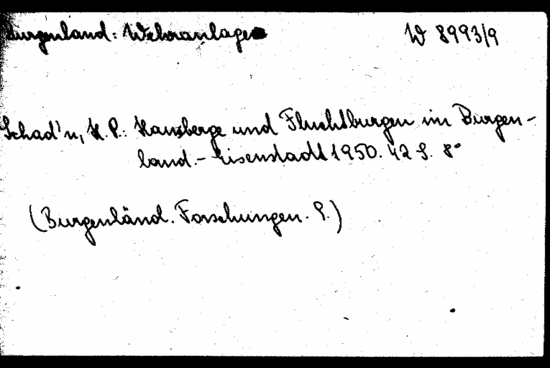 Burgenland: Wehranlagen W 8993/9
Schad'n, H. P.: Hausberge und Fluchtburgen im Burgen-
land. - Eisenstadt 1950. 42 S. 8°
(Burgenländ. Forschungen. 9.)